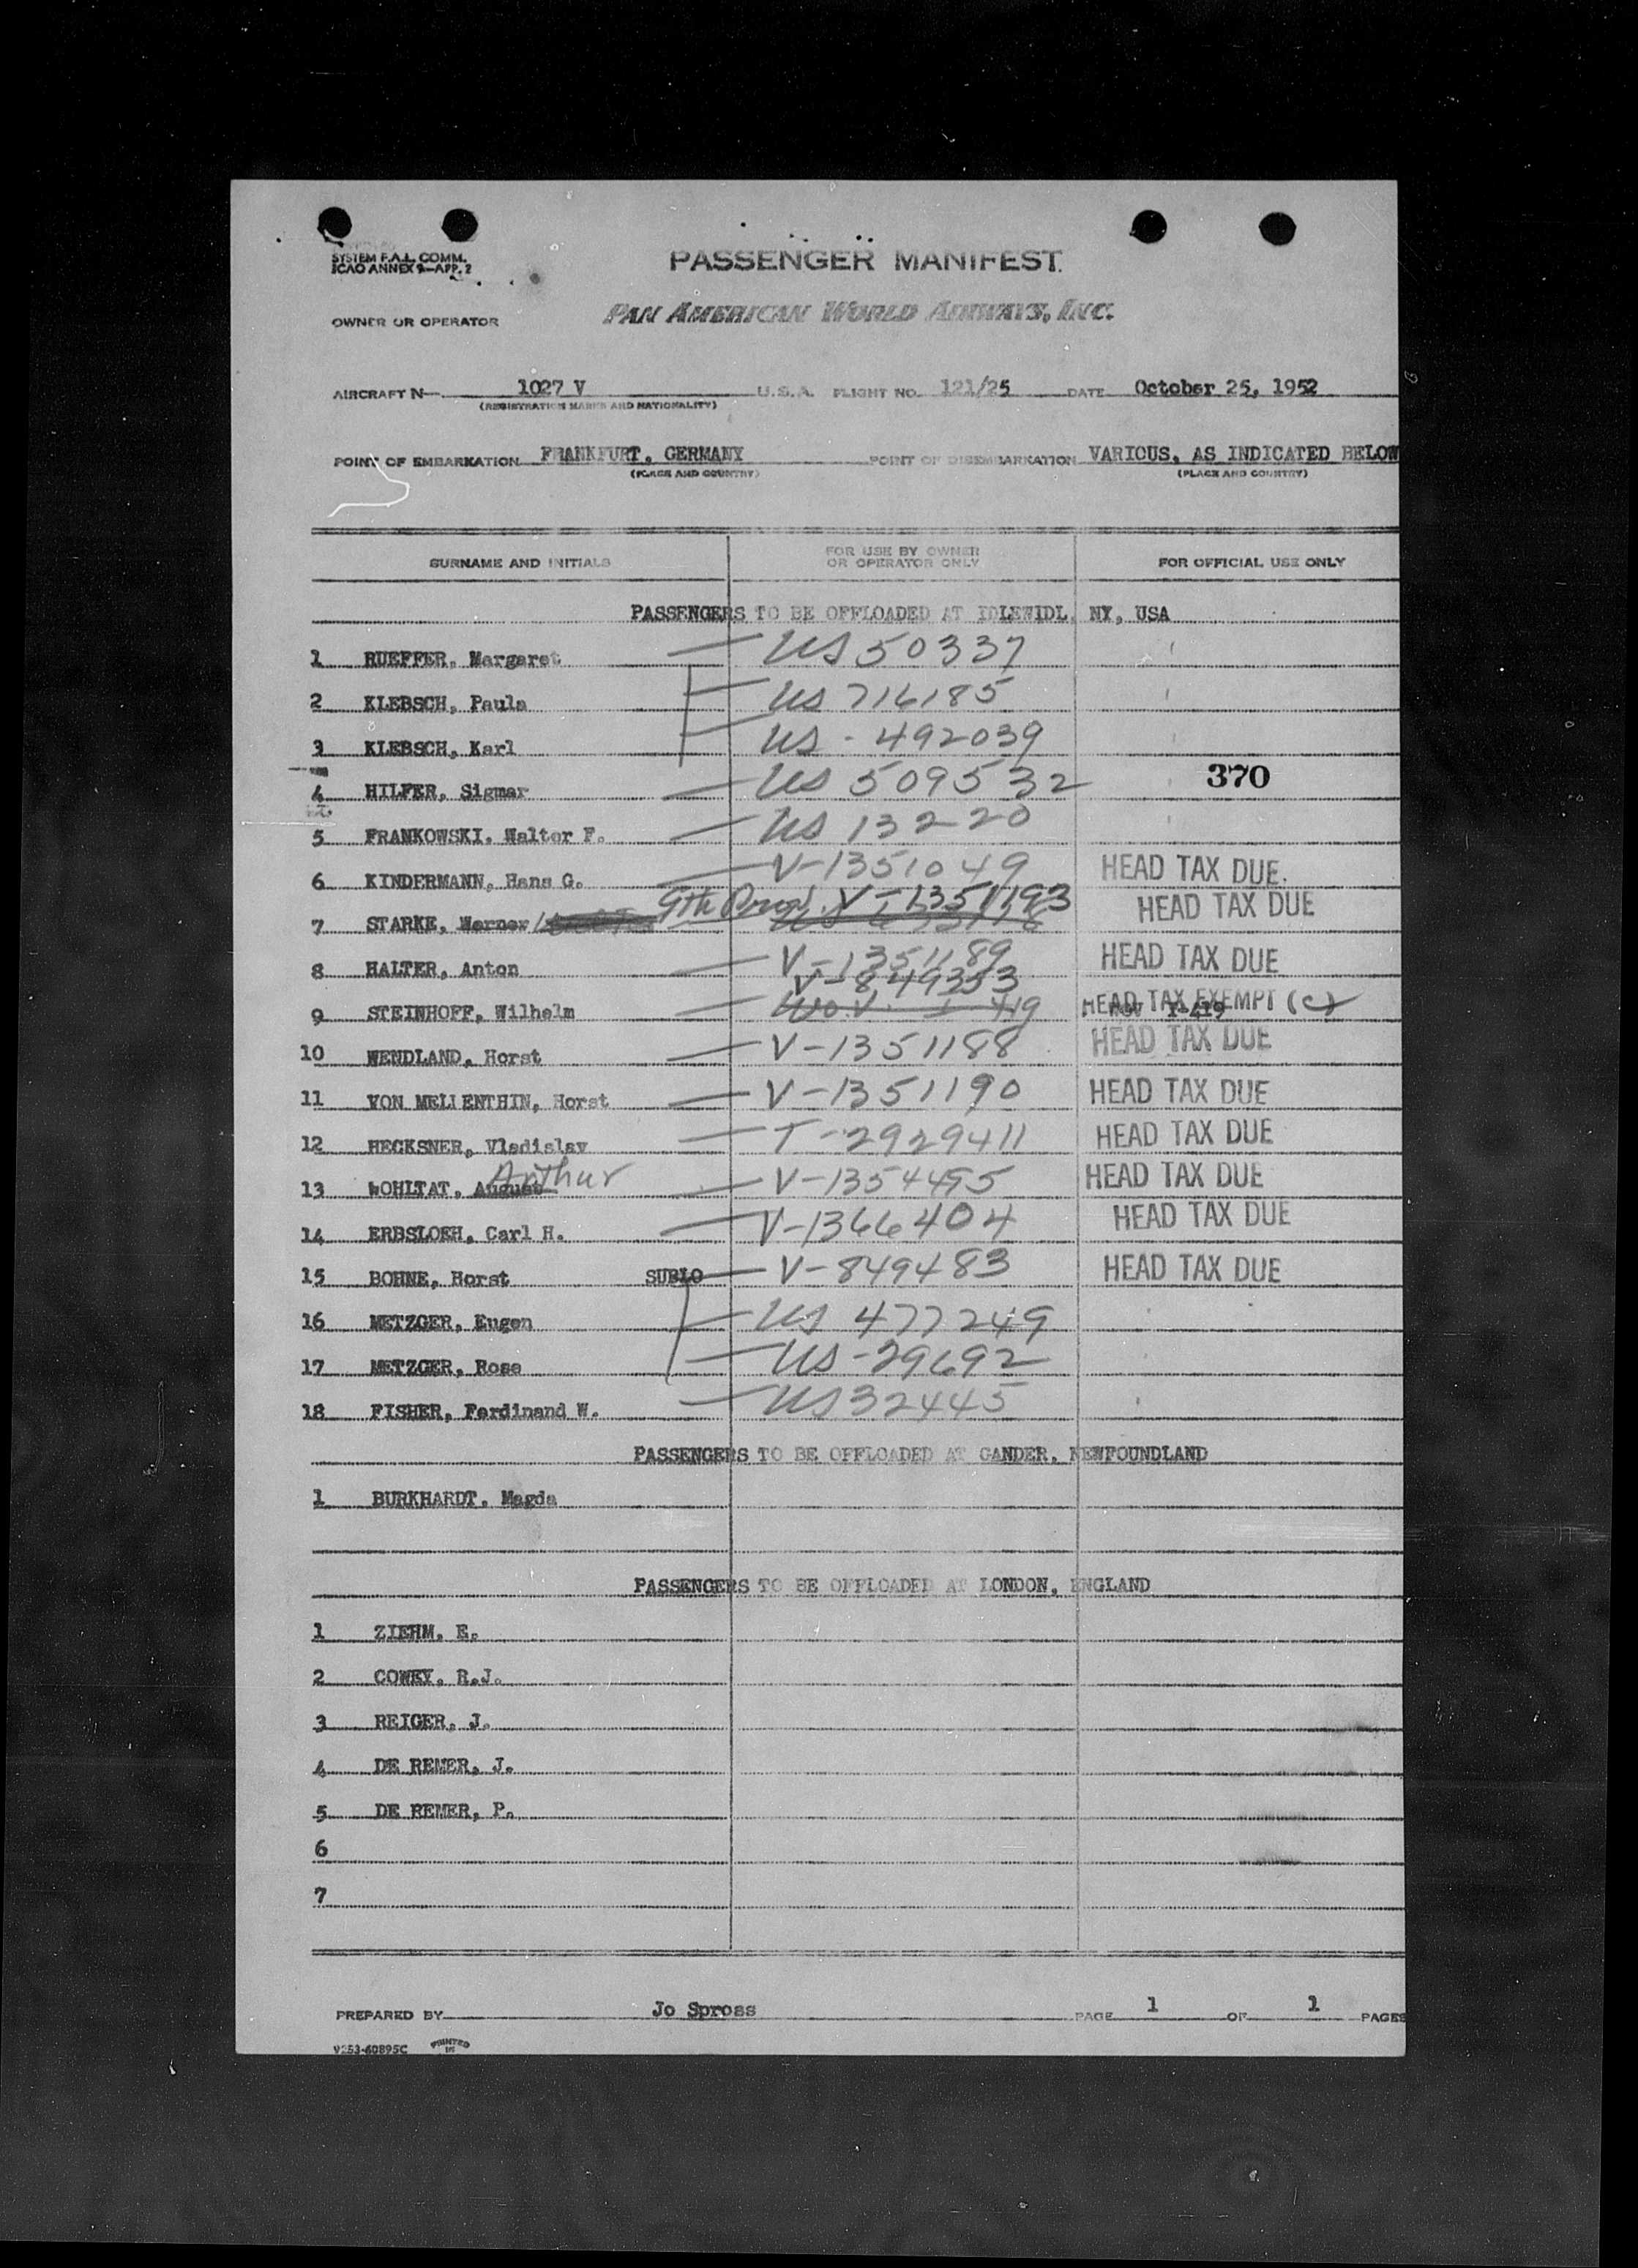 SYSTEM F.A.L. COMM.
ICAO ANNEX 9—APP. 2
PASSENGER MANIFEST
OWNER OR OPERATOR PAN AMERICAN WORLD AIRWAYS, INC.
AIRCRAFT N— 1027 V U.S.A. FLIGHT NO. 121/25 DATE October 25, 1952
(REGISTRATION MARKS AND NATIONALITY)
POINT OF EMBARKATION FRANKFURT, GERMANY POINT OF DISEMBARKATION VARIOUS, AS INDICATED BELOW
(PLACE AND COUNTRY) (PLACE AND COUNTRY)
SURNAME AND INITIALS FOR USE BY OWNER OR OPERATOR ONLY FOR OFFICIAL USE ONLY
PASSENGERS TO BE OFFLOADED AT IDLEWIDL, NY, USA
1 RUEFFER, Margaret US 50337
2 KLEBSCH, Paula US 716185
3 KLEBSCH, Karl US - 492039
4 HILFER, Sigmar US 509532 370
5 FRANKOWSKI, Walter F. US 13220
6 KINDERMANN, Hans G. V-1351049 HEAD TAX DUE.
7 STARKE, Werner 9th Prov. V-1351193 HEAD TAX DUE
8 HALTER, Anton V-1351189 HEAD TAX DUE
9 STEINHOFF, Wilhelm V-849353 HEAD TAX EXEMPT (C)
10 WENDLAND, Horst V-1351188 HEAD TAX DUE
11 VON MELLENTHIN, Horst V-1351190 HEAD TAX DUE
12 HECKSNER, Vladislav T-2929411 HEAD TAX DUE
13 WOHLTAT, August Arthur V-1354495 HEAD TAX DUE
14 ERBSLOEH, Carl H. V-1366404 HEAD TAX DUE
15 BOHNE, Horst SUBLO V-849483 HEAD TAX DUE
16 METZGER, Eugen US 477249
17 METZGER, Rose US-29692
18 FISHER, Ferdinand W. US 32445
PASSENGERS TO BE OFFLOADED AT GANDER, NEWFOUNDLAND
1 BURKHARDT, Magda
PASSENGERS TO BE OFFLOADED AT LONDON, ENGLAND
1 ZIEHM, E.
2 COWEY, R.J.
3 REIGER, J.
4 DE REMER, J.
5 DE REMER, P.
6
7
PREPARED BY Jo Spross PAGE 1 OF 1 PAGES
9253-60895C PRINTED IN